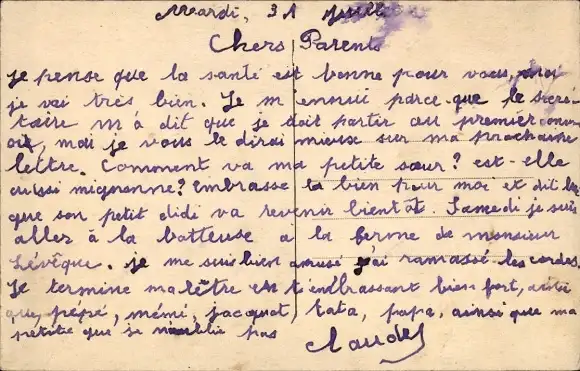 Mardi, 31 Juillet
Chers Parents
je pense que la santé est bonne pour vous, moi
je vai très bien. Je m'ennui parce que le secré-
taire m'a dit que je doit partir au premier convoi
, mai je vous le dirai mieux sur ma prochaine
lettre. Comment va ma petite sœur? est-elle
aussi mignonne? Embrasse la bien pour moi et dit lui
que son petit didi va revenir bientôt. Samedi je suis
allez à la batteuse a la ferme de monsieur
Lévêque. je me suis bien amusé j'ai ramassé les cordes.
Je termine ma lêttre en t'embrassant bien fort, ainsi
que, pépé, mémé, jacquot, tata, papa, ainsi que ma
petite que je n'oublie pas
Claude